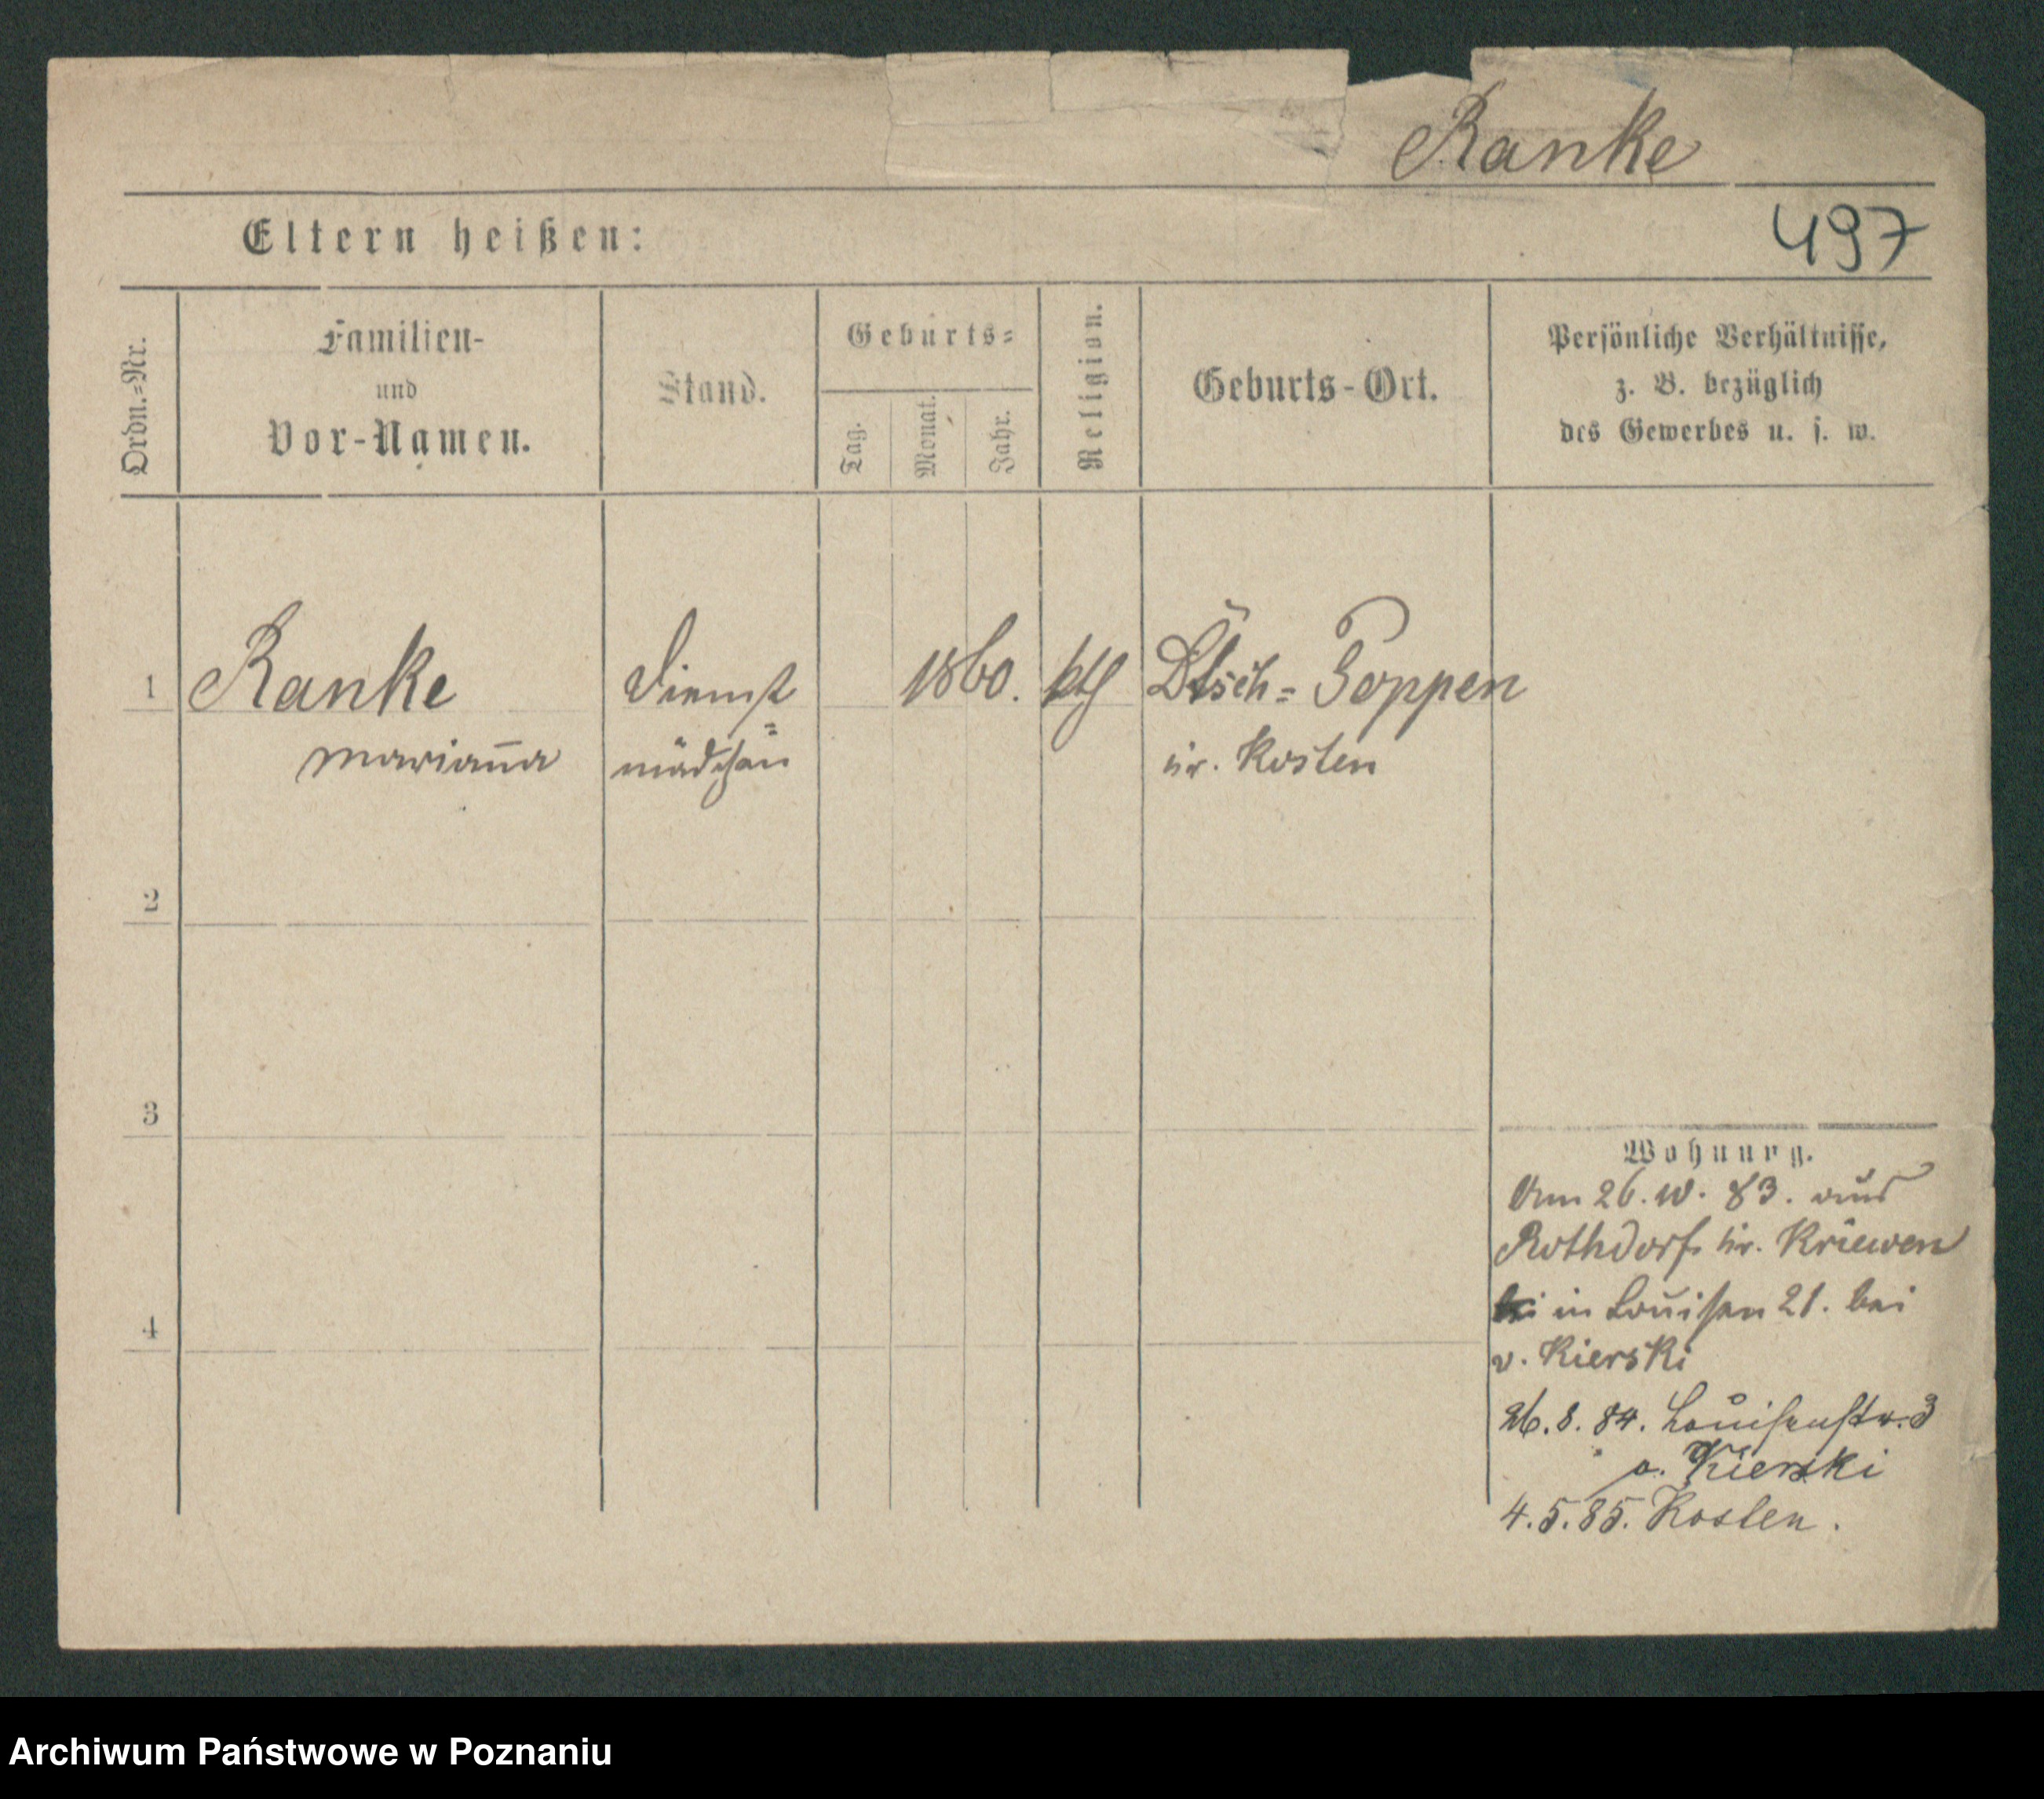 Ranke
497
Eltern heißen:
Ordn.=Nr.
Familien-
und
Vor-Namen.
Stand.
Geburts=
Tag.
Monat.
Jahr.
Religion.
Geburts-Ort.
Persönliche Verhältnisse,
z. B. bezüglich
des Gewerbes u. s. w.
1 Ranke Dienst 1860. kth Dtsch= Poppen
Marianna mädchen Kr. Kosten
2
3
4
Wohnung.
Am 26. 10. 83. aus
Rothdorf Kr. Kriewen
in Louisen 21. bei
v. Kierski
26. 8. 84. Louisenstr. 3
Kierski
4. 5. 85. Kosten.
Archiwum Państwowe w Poznaniu